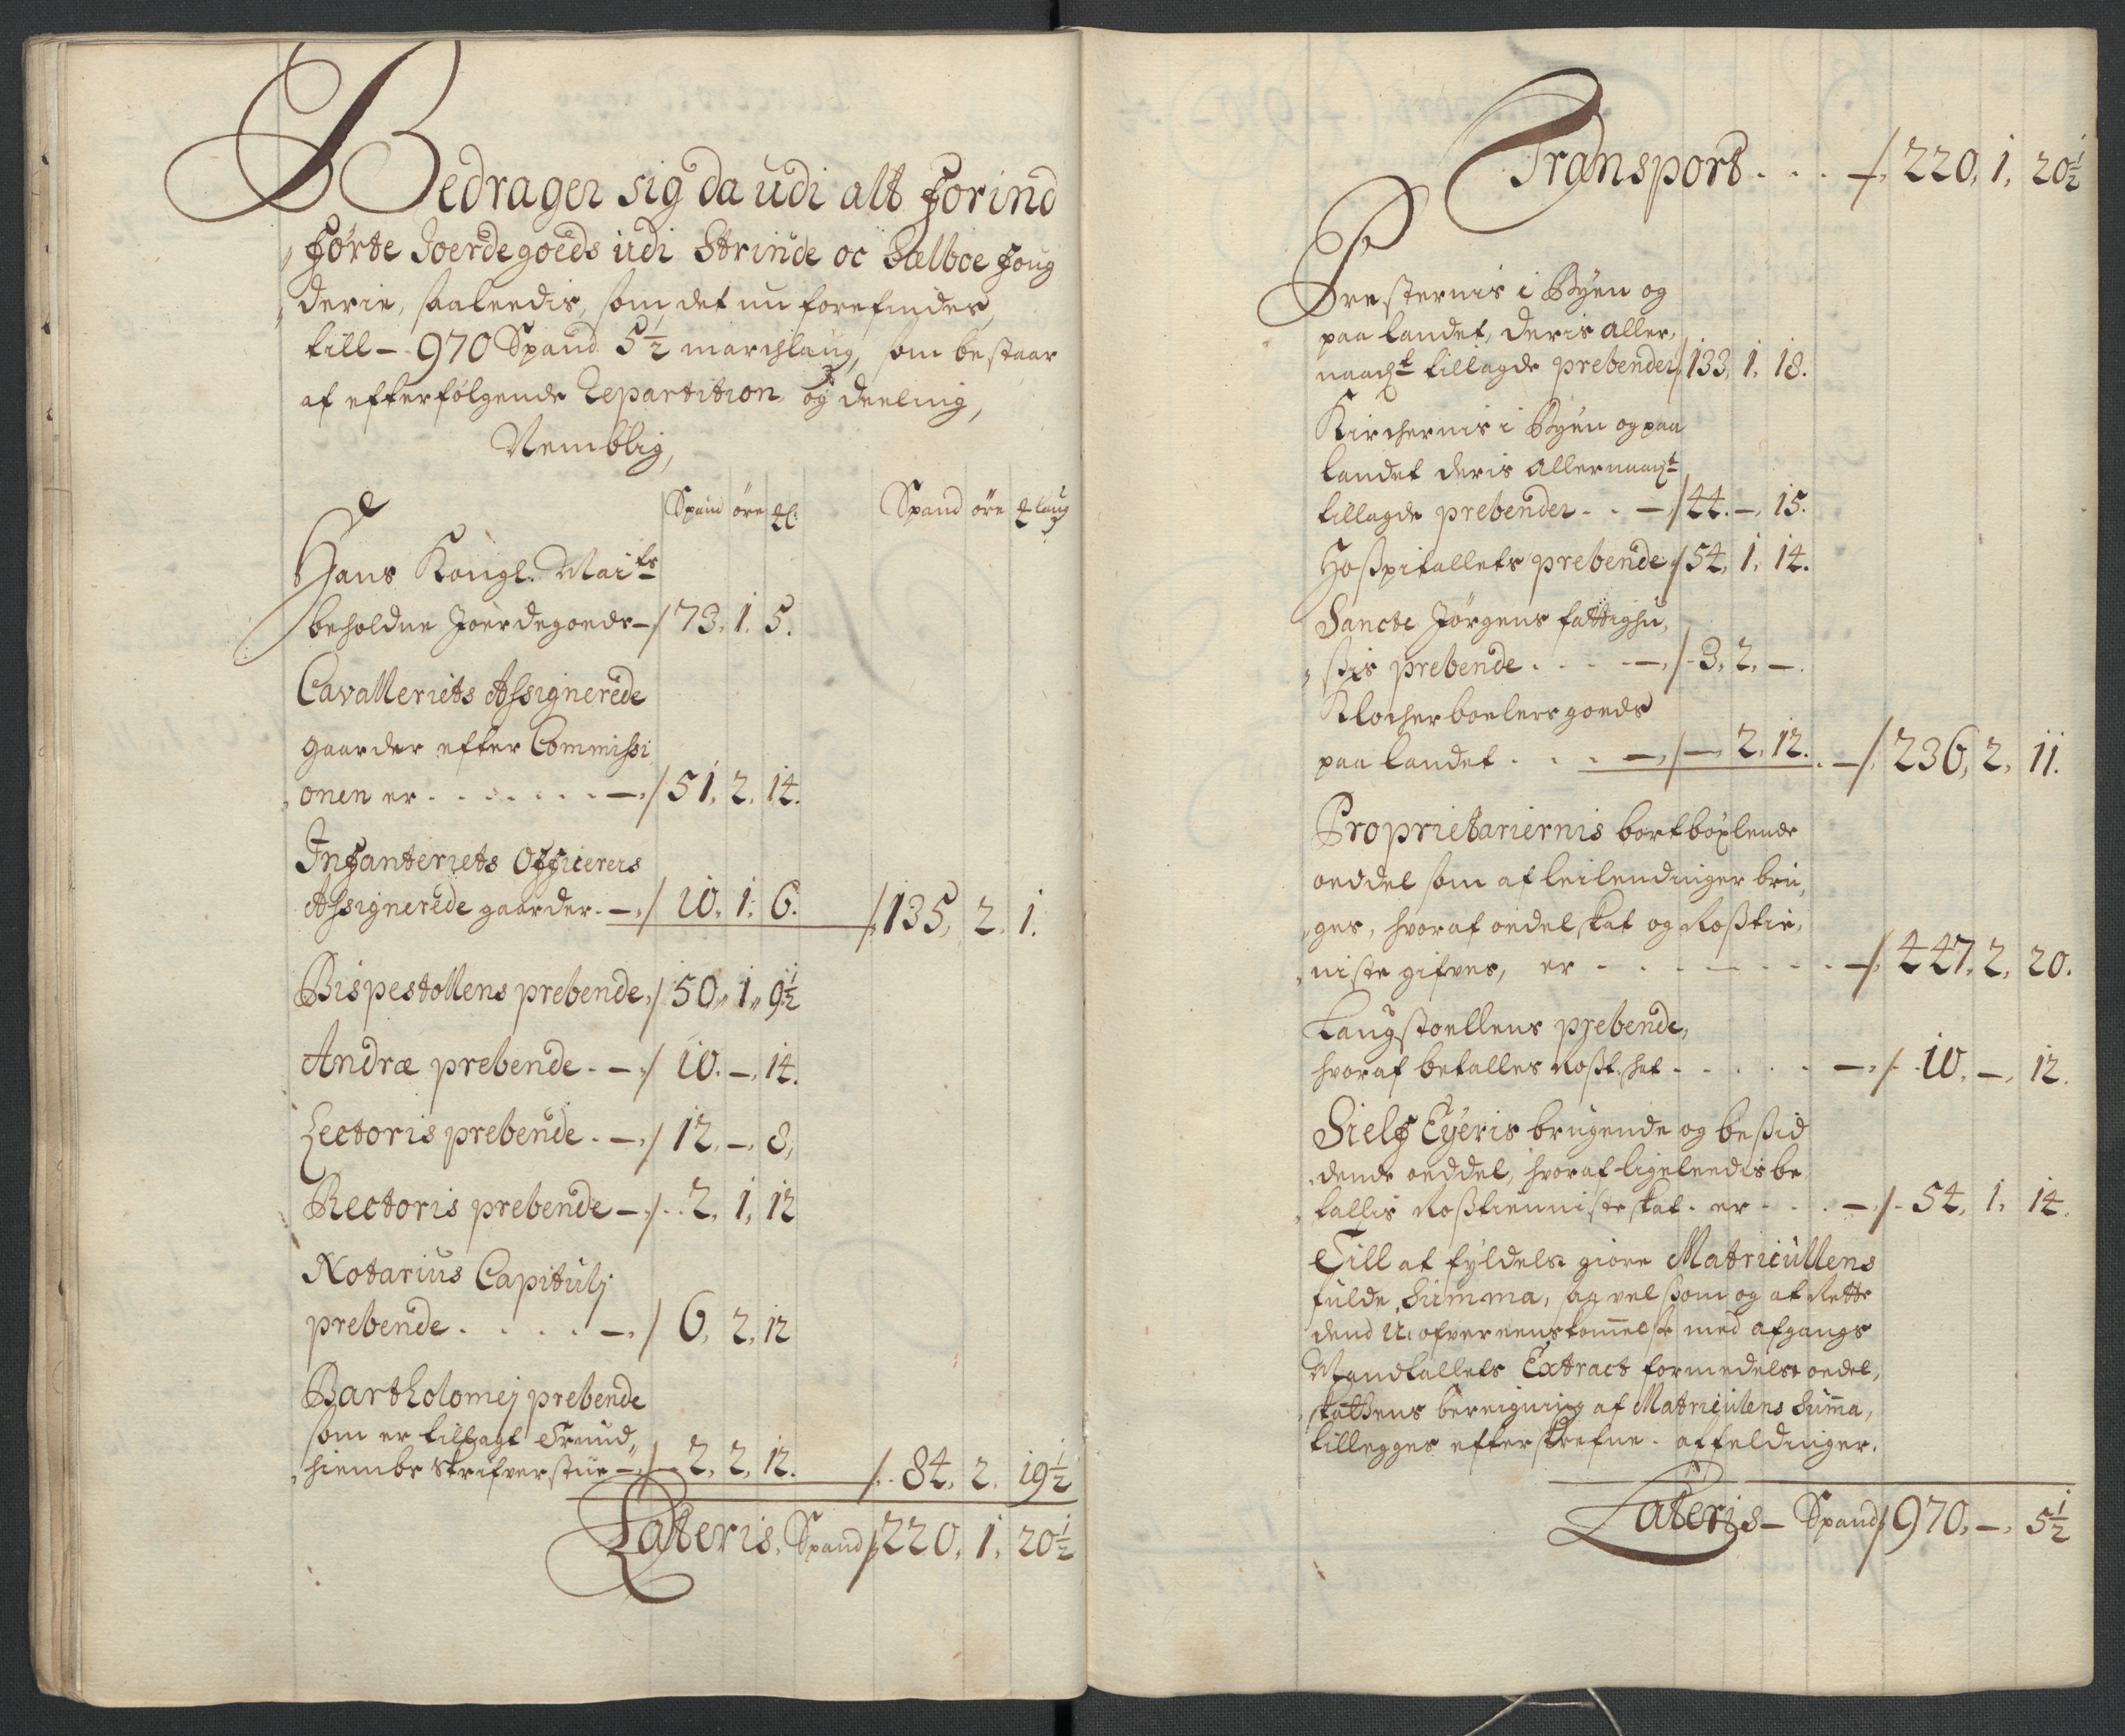 Bedrager sig da udi alt forind
førte Joerdegoeds udi Strinde oc Sælboe foug
derie, saaleedis, som det nu forefindes,
till - 970 Spand 5½ marchlaug, som bestaar
af efterfølgende Repartition og deeling,
Nemblig,
Spand öre Spand öre laug
Hans Kongl. Maits
beholdne Joerdegoeds - / 73. 1. 5.
Cavalleriets Assignerede
gaarder efter Commissi
onen er . . . . . . . - / 51. 2. 14.
Infanteriets Officerers
Assignerede gaarder. - / 10. 1. 6. / 135. 2. 1.
Bispestollens prebende / 50. 1. 9½
Andræ prebende . - / 10. -. 14.
Lectoris prebende . - / 12. -. 8.
Rectoris prebende - / . 2. 1. 12
Notarius Capitulj
prebende . . . . . - / 6. 2. 12
Bartholomej prebende
som er tillagt Trund
hiembs Skrifverstue - / 2. 2. 12. / . 84. 2. 19½
Lateris. Spand / 220. 1. 20½
Transport . . . - / 220. 1. 20½
Presternis i Byen og
paa landet, deris aller
naadt tillagde prebender / 133. 1. 18.
Kirchernis i Byen og paa
landet deris allernaadt
tillagde prebender . . - / 44. -. 15.
Hospitallets prebende / 54. 1. 14.
Sancte Jörgens fattighu
sis prebende . . . . - / . 3. 2. -.
Klocherboelers goeds
paa landet . . . . - / -. 2. 12. . - / 236. 2. 11.
Proprietariernis bortböxlende
oeddel som af leilendinger bru
ges, hvoraf oedelskat og Rosstie
niste gifves, er . . . . . . . - / 447. 2. 20.
Laugstoellens prebende,
hvoraf betalles Rosst. skat . . . . . - / . 10. -. 12.
Sielf Eyeris brugende og besid
dende oeddel, hvoraf ligeleedis be
tallis Rosstienniste skat. er . . . - / . 54. 1. 14.
Till at fyldest giöre Matricullens
fulde Summa, saa vel som og at Rette
dend U. ofvereenskommelse med afgangs
Mandtallets Extract formedelst oedel,
skattens bereigning af Matriculens Summa,
tillegges efterskrefne . affeldinger.
Lateris - Spand / 970. -. 5½